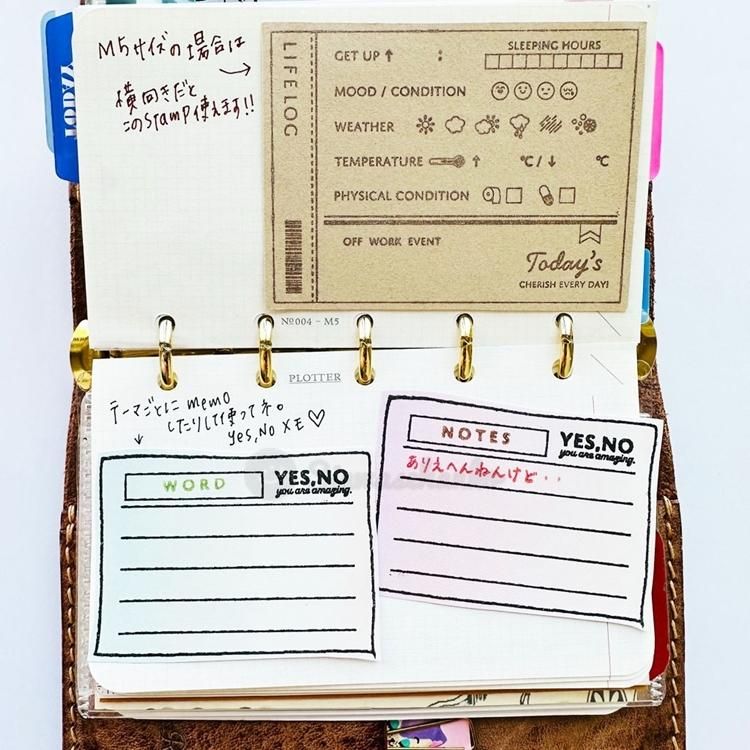 M5サイズの場合は
横向きだと
このStamp使えます!!
TODAY
LIFELOG
GET UP ↑ :
SLEEPING HOURS
MOOD / CONDITION
WEATHER
TEMPERATURE ↑ ℃/↓ ℃
PHYSICAL CONDITION
OFF WORK EVENT
Today's
CHERISH EVERY DAY!
Nº004 - M5
PLOTTER
テーマごとに memo
したりして使ってネ。
Yes,No メモ♡
WORD
YES,NO
you are amazing.
NOTES
YES,NO
you are amazing.
ありえへんねんけど・・